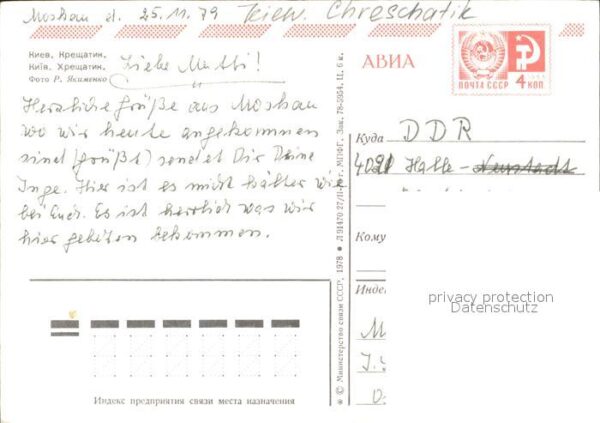 Moskau d. 25.11.79 Kiew. Chreschatik
Киев. Крещатик.
Київ. Хрещатик.
Фото Р. Якименко
Liebe Mutti!
АВИА
ПОЧТА СССР 4 КОП
Herzliche Grüße aus Moskau
wo wir heute angekommen
sind (grüßt) sendet Dir Deine
Inge. Hier ist es nicht kälter wie
bei Euch. Es ist herrlich was wir
hier geboten bekommen.
Куда DDR
4020 Halle-Neustadt
Кому
Индекс
privacy protection
Datenschutz
Индекс предприятия связи места назначения
© Министерство связи СССР, 1978
Л 91470 27/II-78 г. МПФГ. Зак. 78-3954. Ц. 6 к.